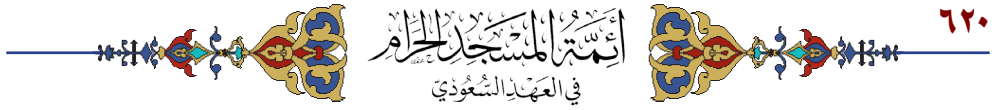 ٦٢٠
أئمة المسجد الحرام
في العهد السعودي